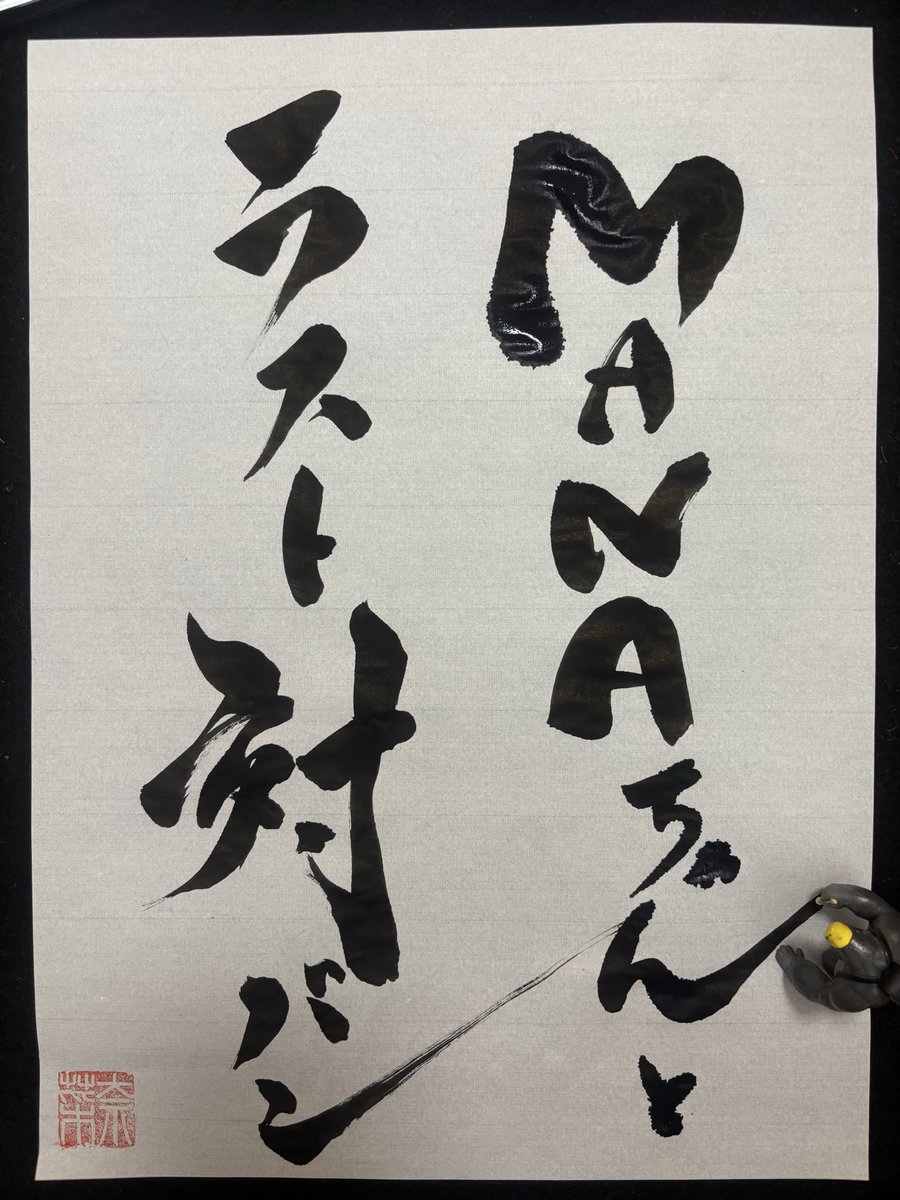 MANAちゃんと
ラスト対バン